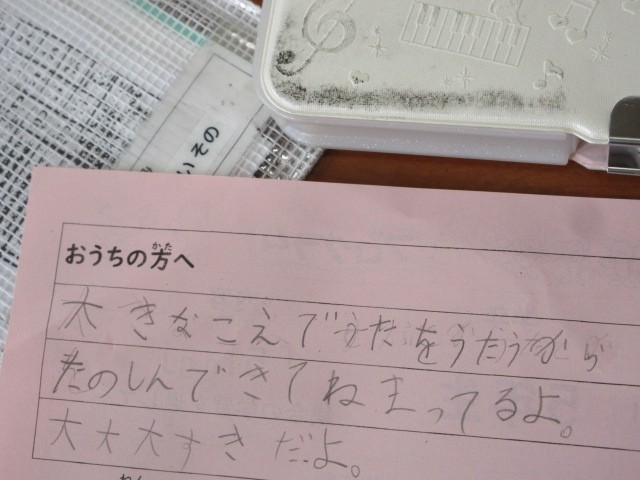 いその
おうちの方へ
かた
大きなこえでうたをうたうから
たのしんできてねまってるよ。
大大大すきだよ。